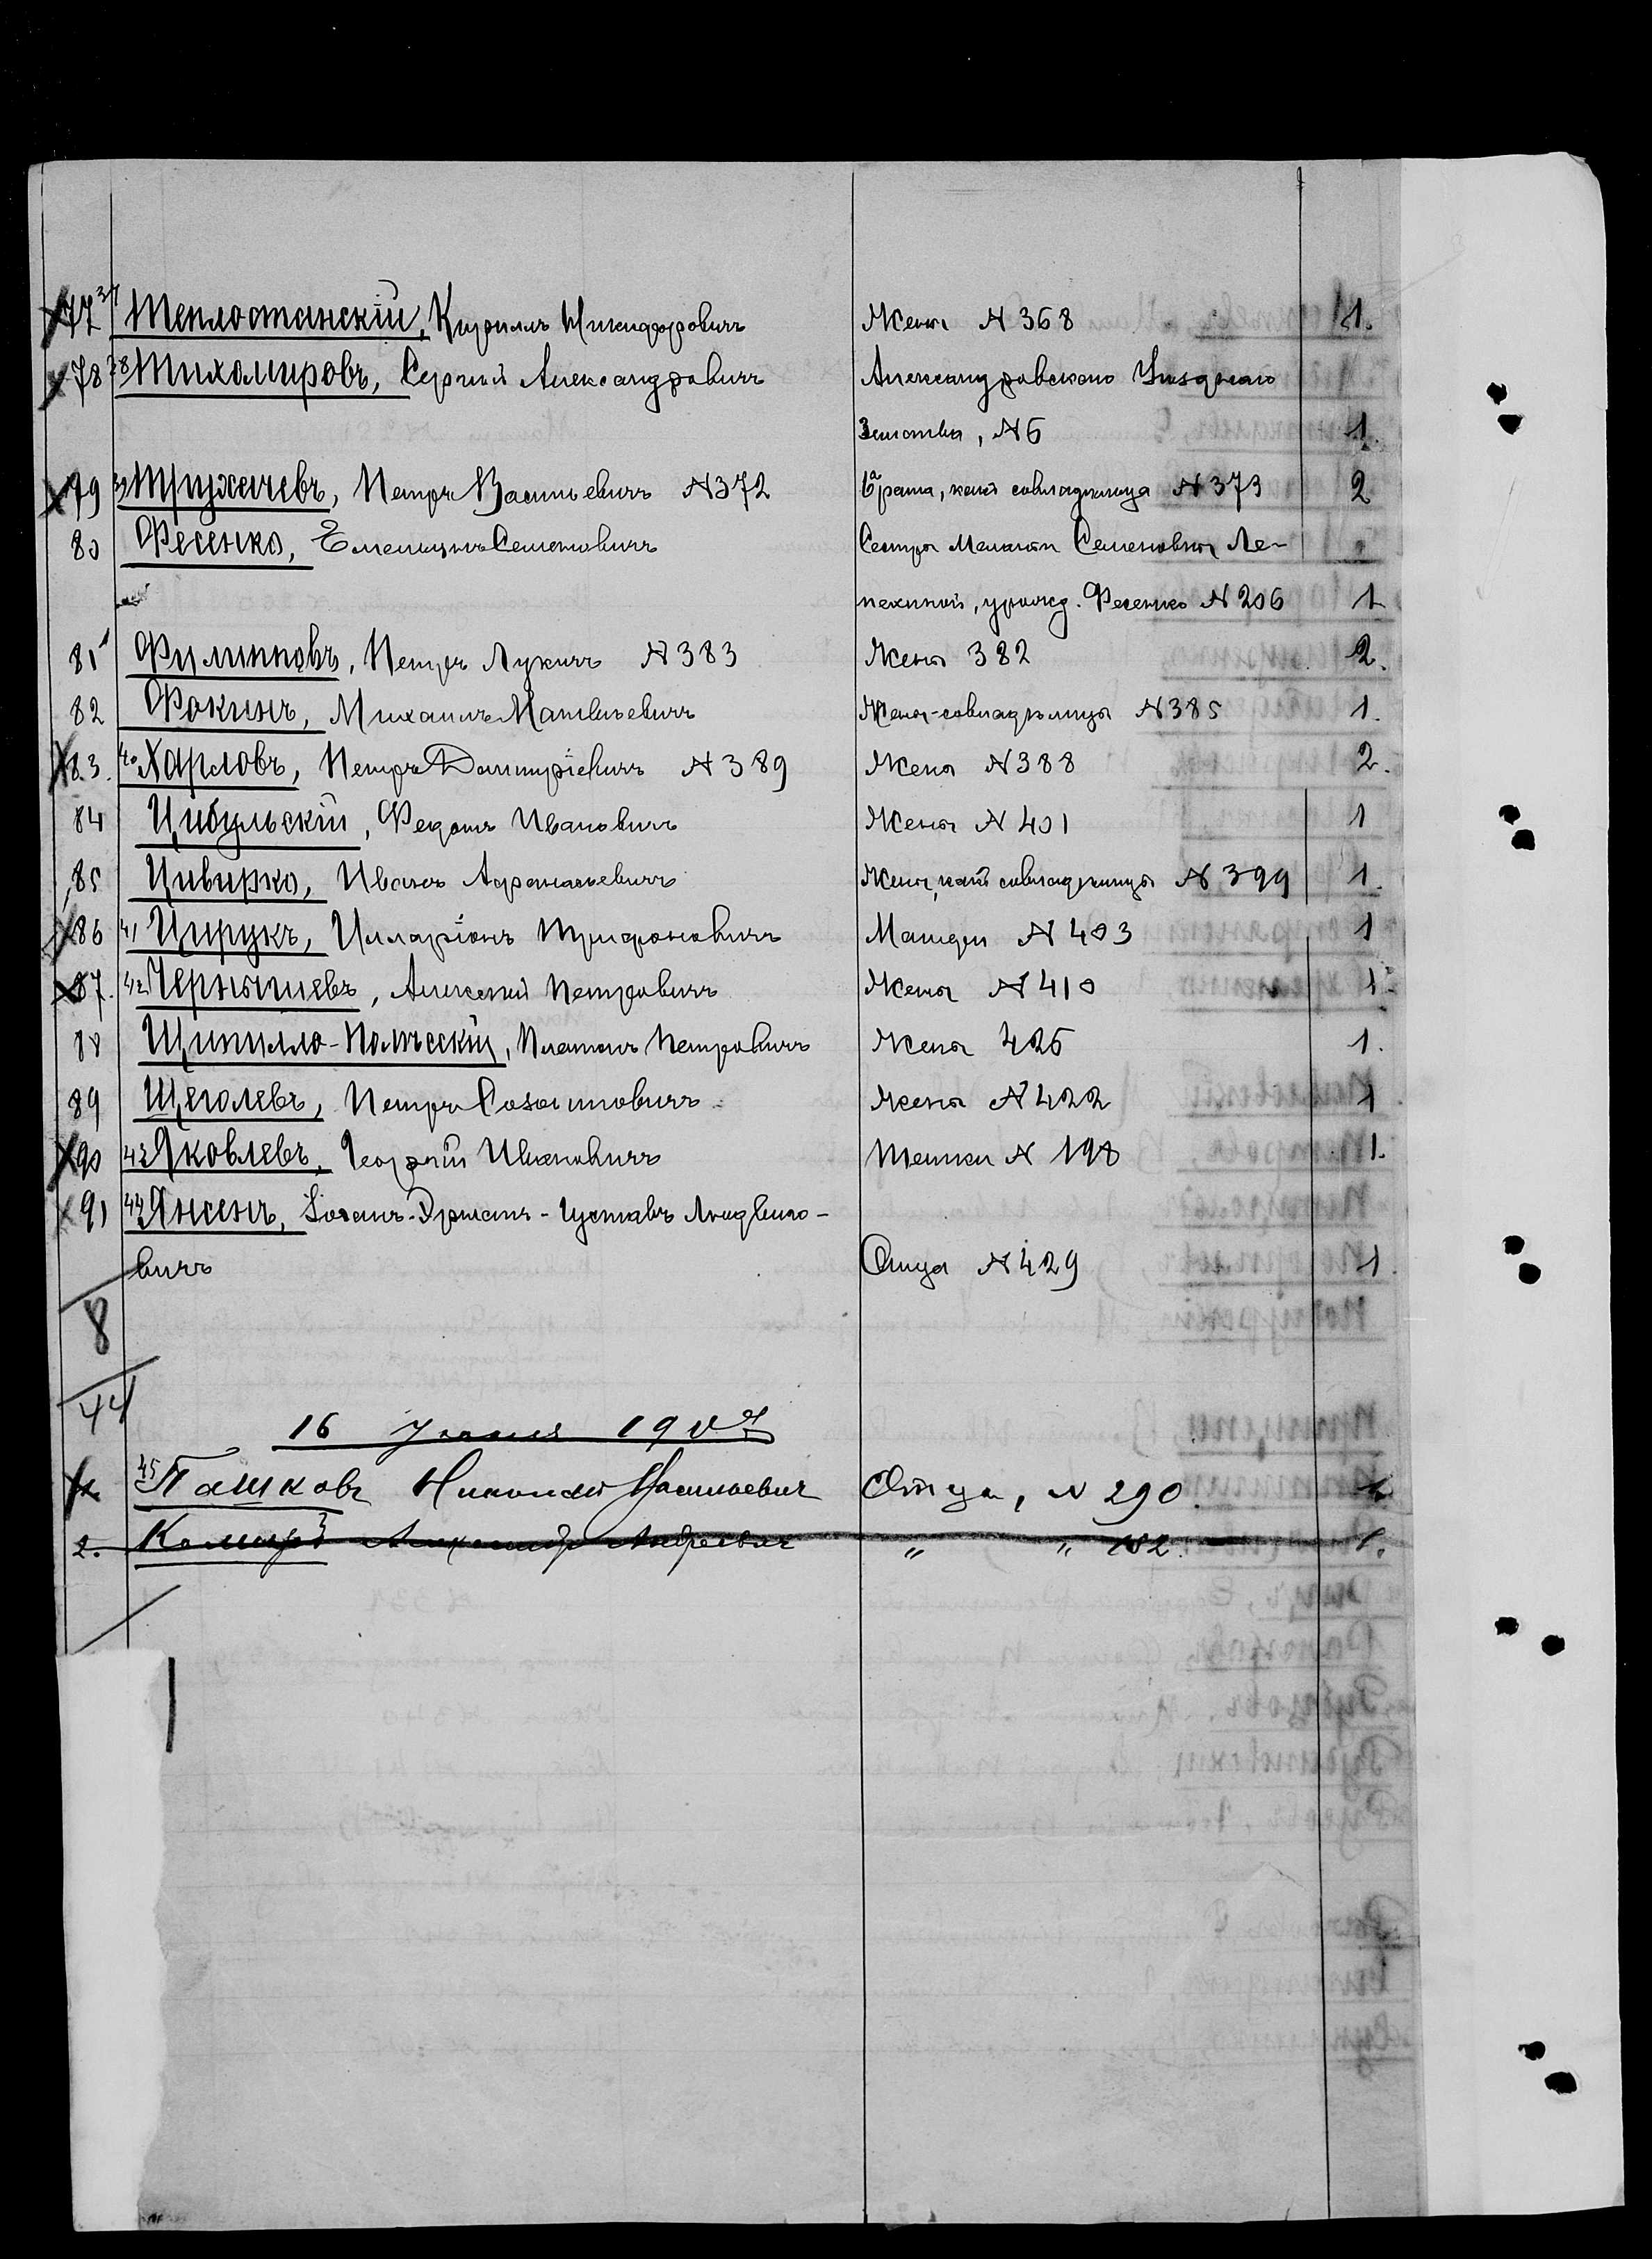 77 37 Теплостанскій, Кириллъ Никифоровичъ Жены N 368 1.
78 38 Тихомировъ, Сергѣй Александровичъ Александровскаго Уѣзднаго
Земства, N 6 1.
79 39 Тружачевъ, Петръ Васильевичъ N 372 брата, какъ совладѣльца N 373 2
80 Фесенко, Емельянъ Семеновичъ Сестры Меланіи Семеновны Ле-
пехиной, урожд. Фесенко N 206 1
81 Филипповъ, Петръ Лукичъ N 383 Жены 382 2.
82 Фокинъ, Михаилъ Матвѣевичъ Жены-совладѣлицы N 385 1.
83. 40 Харловъ, Петръ Дмитріевичъ N 389 Жена N 388 2.
84 Цибульскій, Федотъ Ивановичъ Жены N 401 1
85 Цивирко, Иванъ Афанасьевичъ Жены, какъ совладѣлицы N 399 1.
86 41 Цирукъ, Илларіонъ Трифоновичъ Матери N 403 1
87. 42 Чернышевъ, Алексѣй Петровичъ Жены N 410 1.
88 Щипилло-Полѣсскій, Платонъ Петровичъ Жена 425 1.
89 Щеголевъ, Петръ Созонтовичъ Жены N 422 1
90 43 Яковлевъ, Георгій Ивановичъ Тетки N 198 1.
91 44 Янсенъ, Іоганъ-Германъ-Густавъ Людвиго-
вичъ Отца N 429 1.
8
44
16 Іюня 1907
1. 45 Пашковъ Николай Васильевич Отца, N 290. 1.
2. Александр Андреевич " " 182. 1.